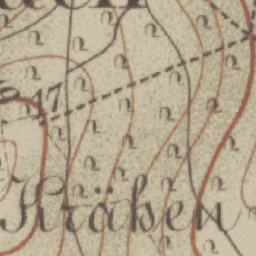 17
Krähen